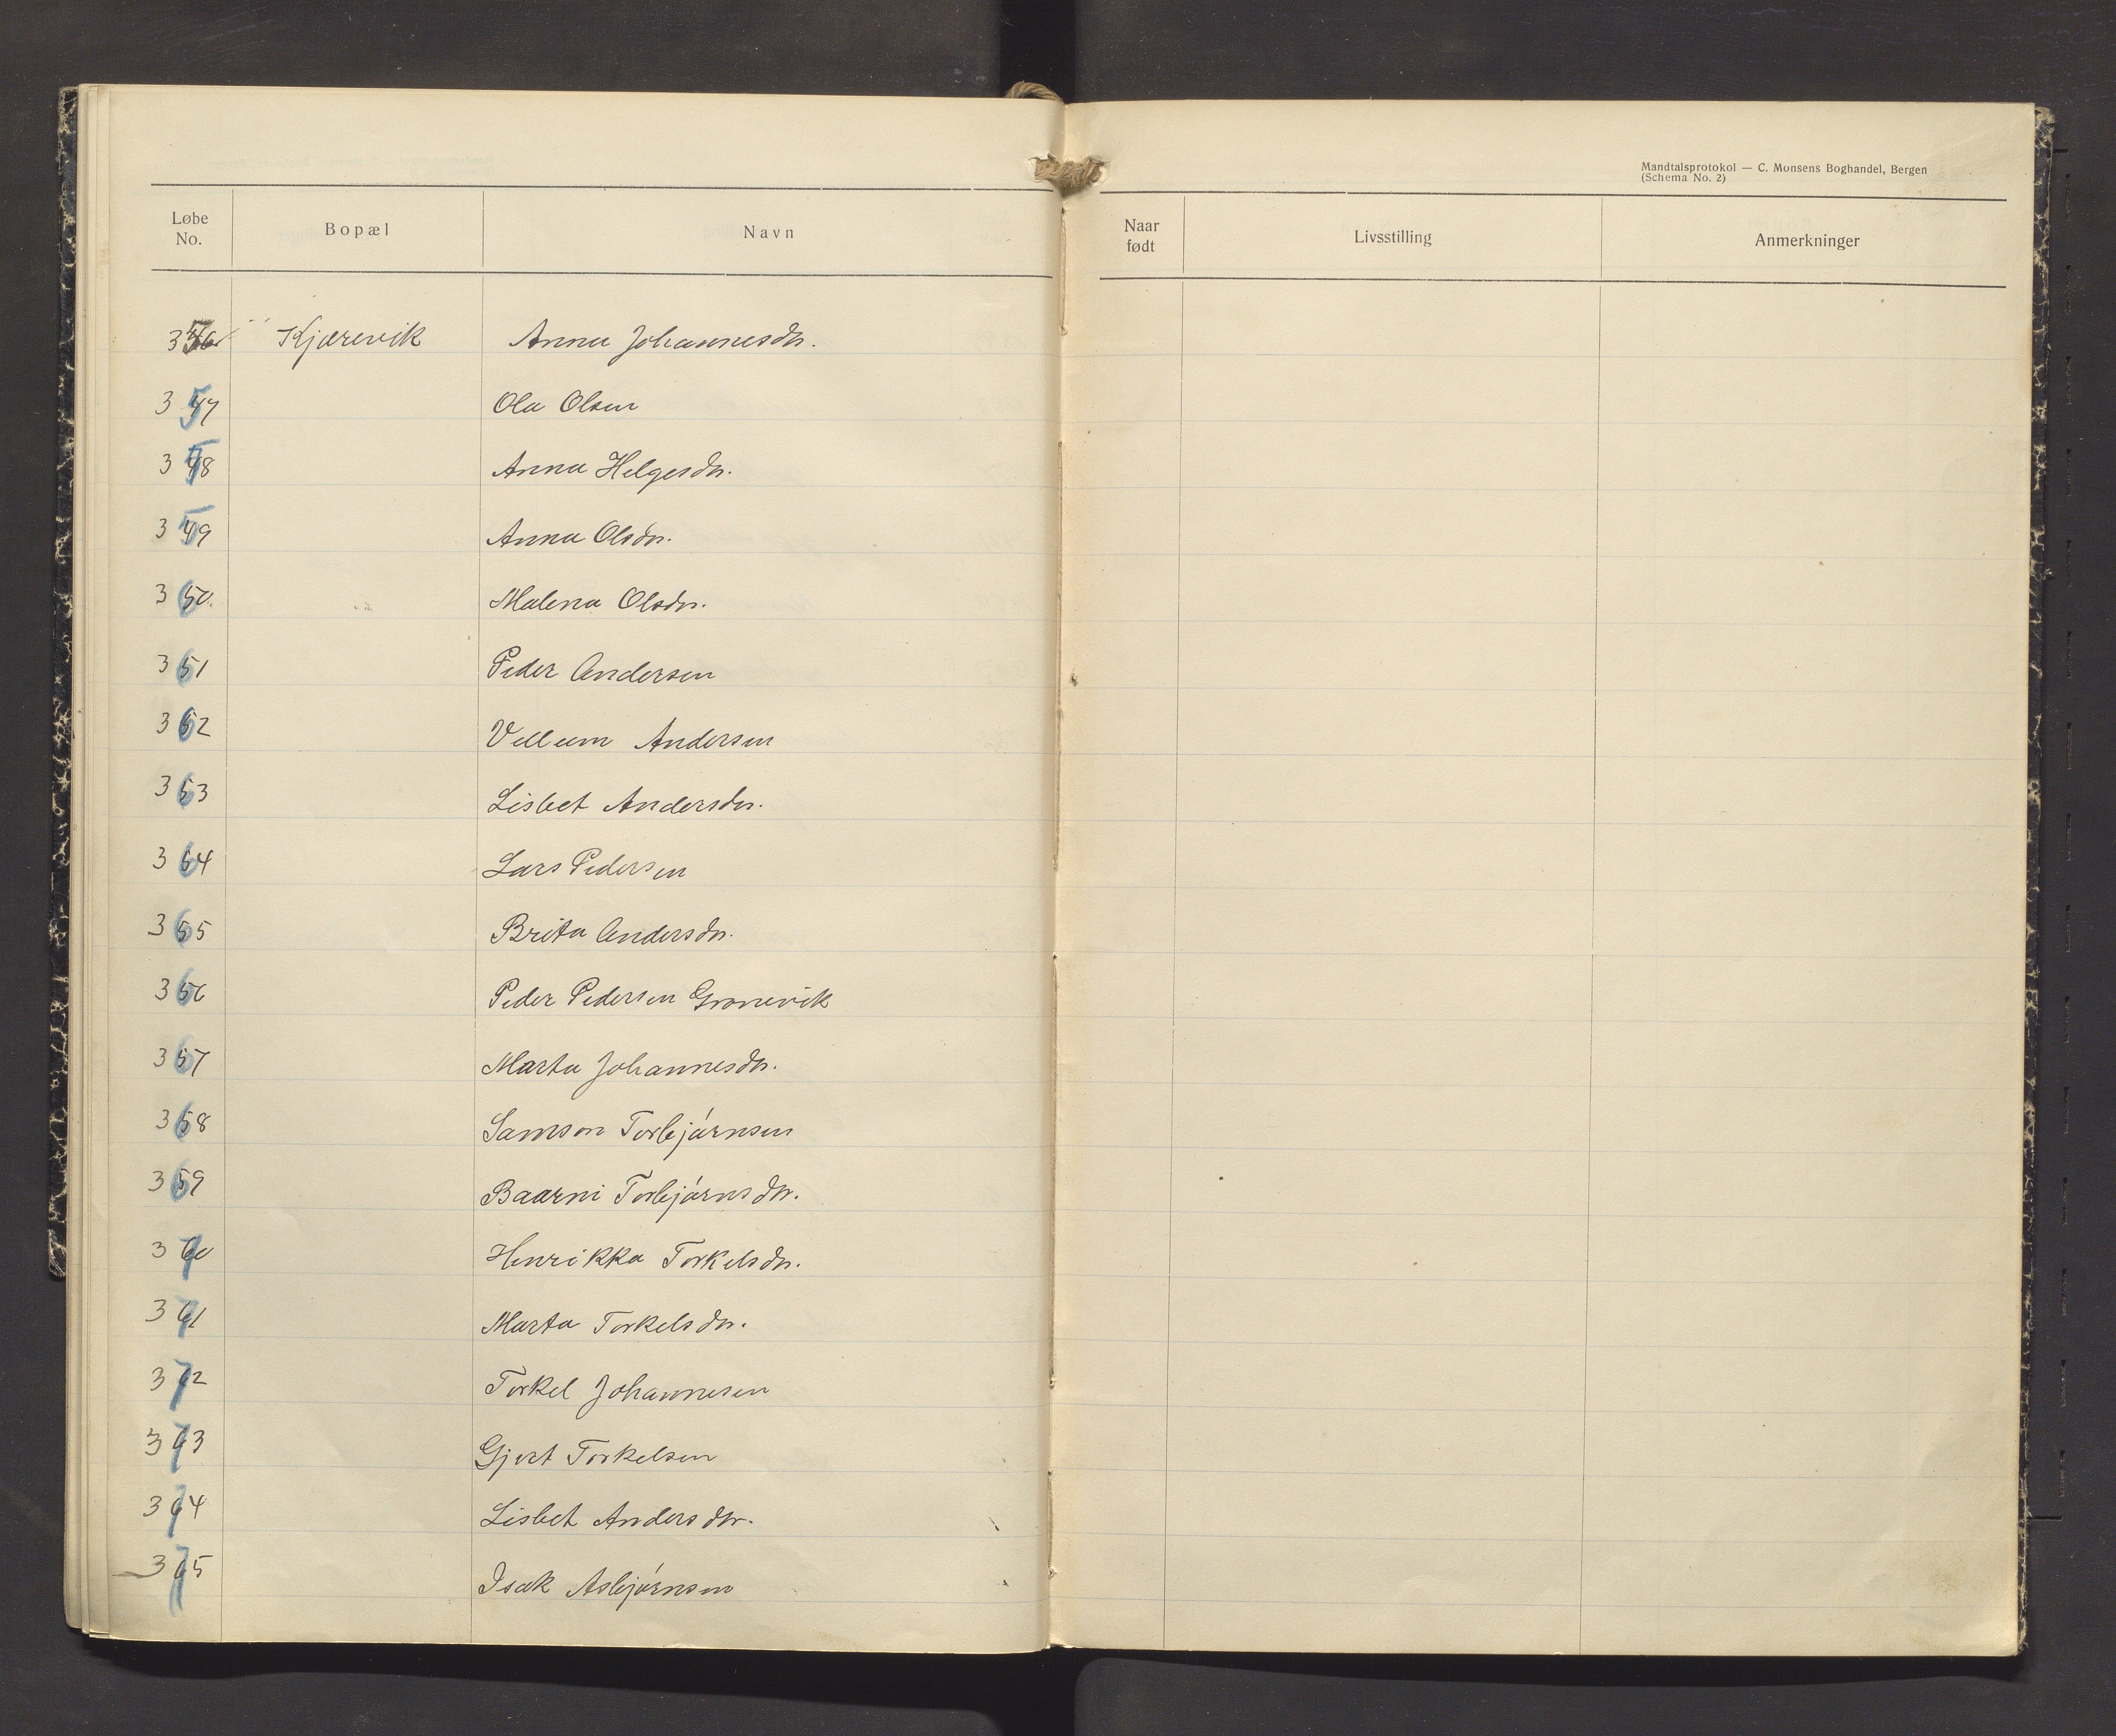 Mandtalsprotokol — C. Monsens Boghandel, Bergen
(Schema No. 2)
Løbe No. Bopæl Navn Naar født Livsstilling Anmerkninger
356 Kjærevik Anna Johannesdr.
357 Ola Olsen
358 Anna Helgesdr.
359 Anna Olsdr.
360 Malena Olsdr.
361 Peder Andersen
362 Vellum Andersen
363 Lisbet Andersdr.
364 Lars Pedersen
365 Brita Andersdr.
366 Peder Pedersen Gronevik
367 Marta Johannesdr.
368 Samson Torbjørnsen
369 Baarni Torbjørnsdr.
370 Henrikka Torkelsdr.
371 Marta Torkelsdr.
372 Torkel Johannesen
373 Gjert Torkelsen
374 Lisbet Andersdr.
375 Isak Asbjørnsen